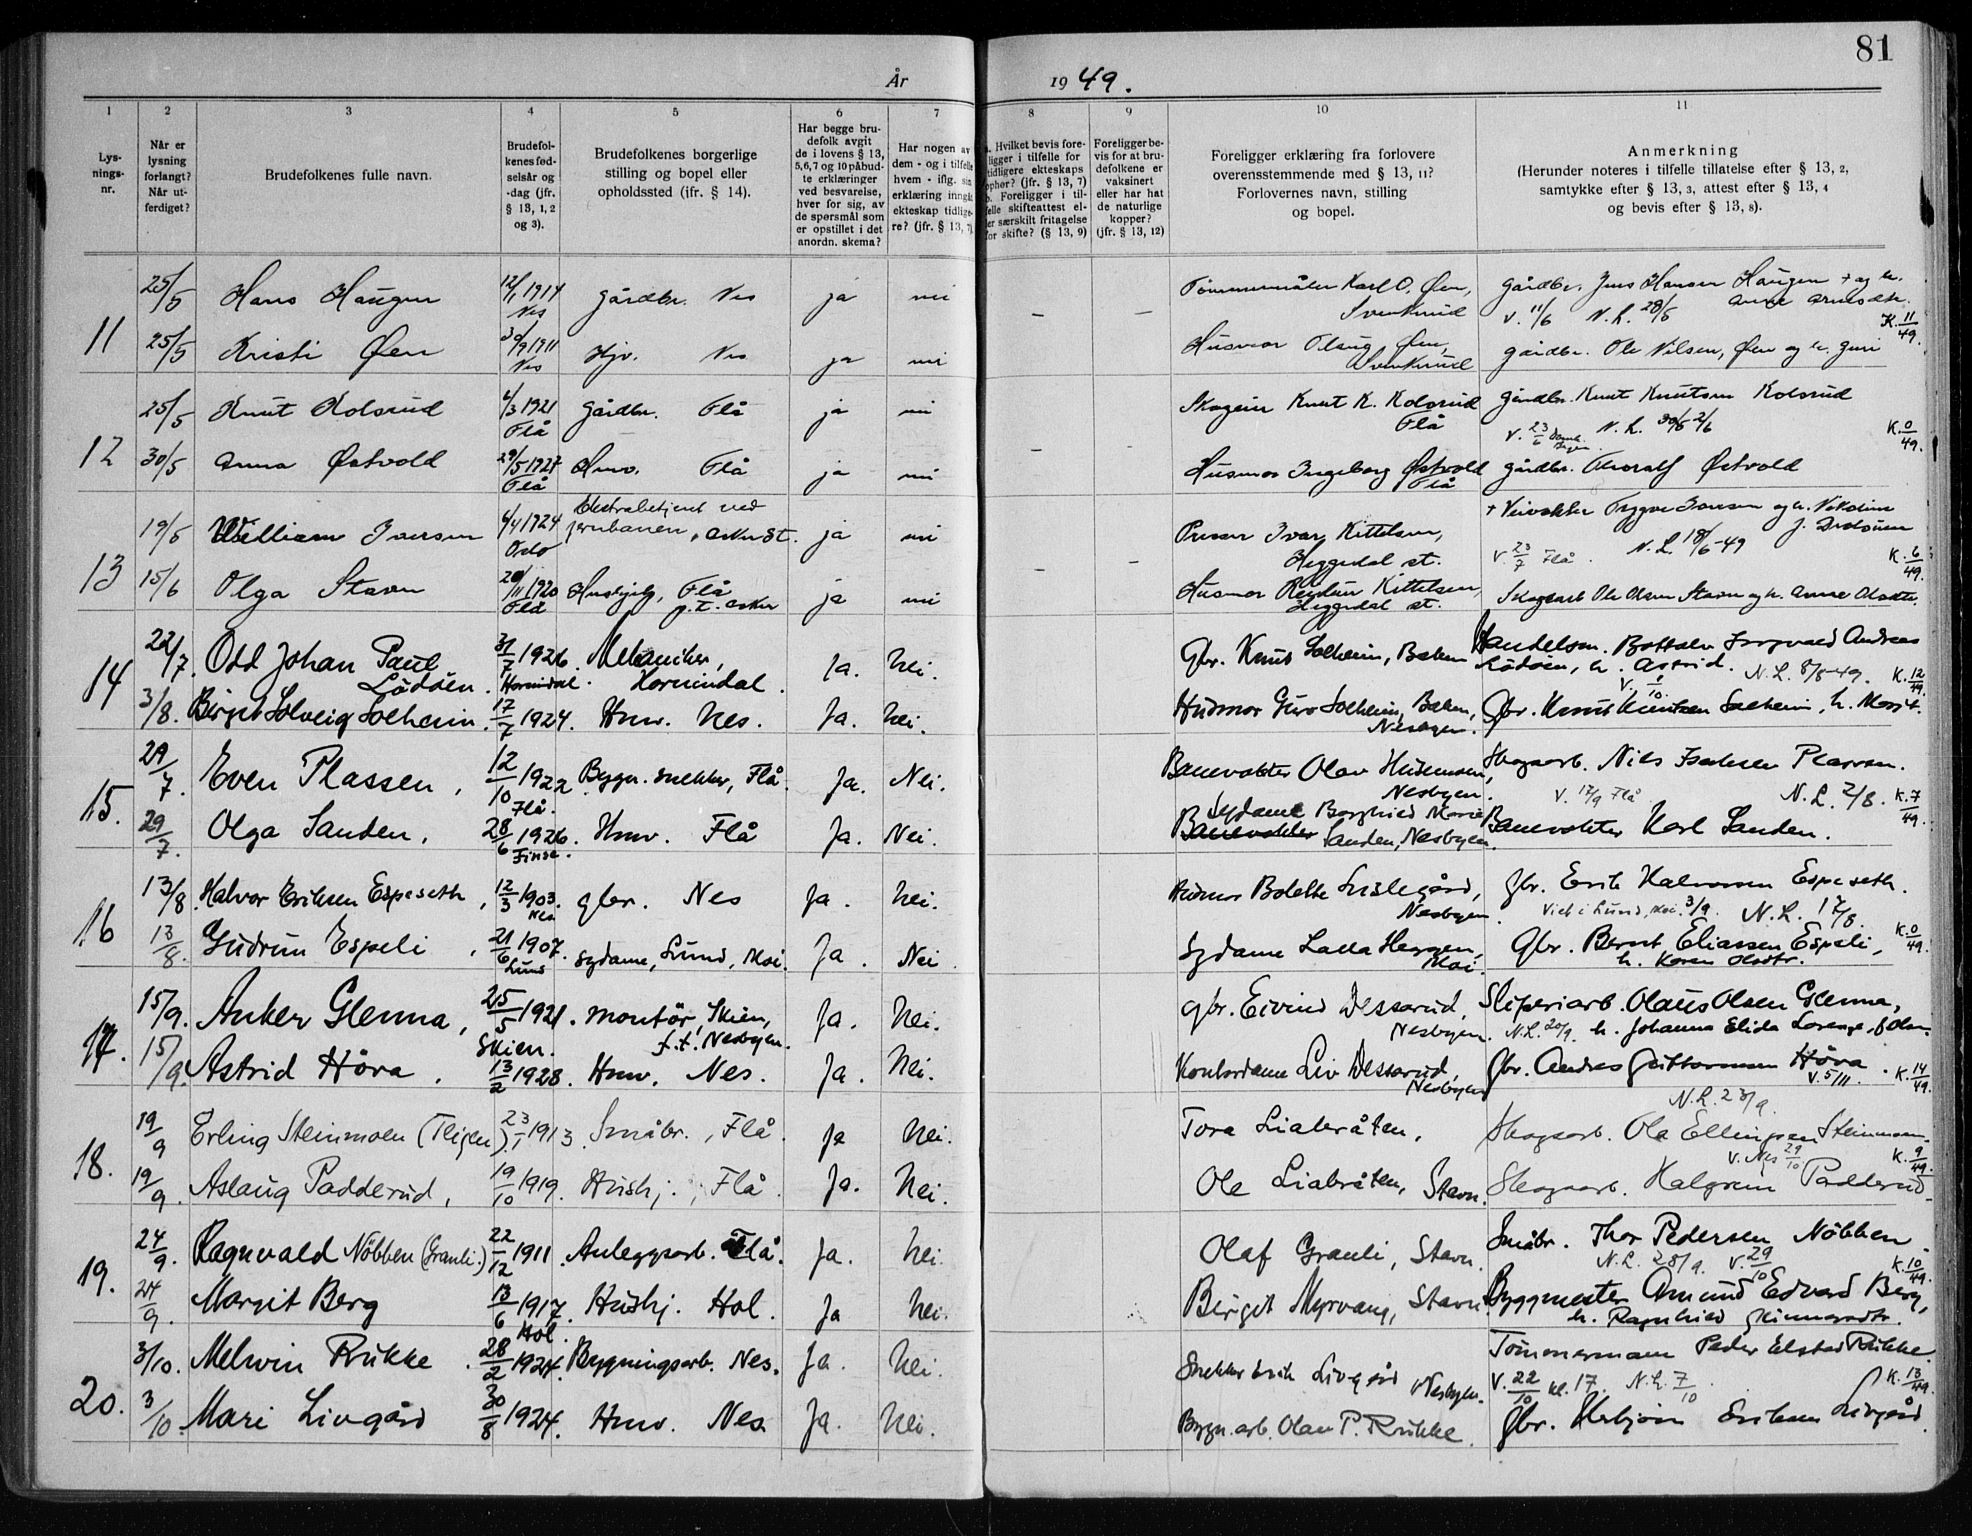 81
År 1949.
1 2 3 4 5 6 7 8 9 10 11
Lys-
nings-
nr.
Når er
lysning
forlangt?
Når ut-
ferdiget?
Brudefolkenes fulle navn.
Brudefol-
kenes fød-
selsår og
-dag (jfr.
§ 13, 1, 2
og 3).
Brudefolkenes borgerlige
stilling og bopel eller
opholdssted (jfr. § 14).
Har begge bru-
defolk avgit
de i lovens § 13,
5,6,7 og 10 påbud-
te erklæringer
ved besvarelse,
hver for sig, av
de spørsmål som
er opstillet i det
anordn. skema?
Har nogen av
dem - og i tilfelle
hvem - iflg. sin
erklæring inngåt
ekteskap tidlige-
re? (jfr. § 13, 7).
a. Hvilket bevis fore-
ligger i tilfelle for
tidligere ekteskaps
ophør? (jfr. § 13, 7)
b. Foreligger i til-
felle skifteattest el-
ler særskilt fritagelse
for skifte? (§ 13, 9)
Foreligger be-
vis for at bru-
defolkene er
vaksinert
eller har hat
de naturlige
kopper?
(jfr. § 13, 12)
Foreligger erklæring fra forlovere
overensstemmende med § 13, 11?
Forlovernes navn, stilling
og bopel.
Anmerkning
(Herunder noteres i tilfelle tillatelse efter § 13, 2,
samtykke efter § 13, 3, attest efter § 13, 4
og bevis efter § 13, 8).
11
25/5 Hans Haugen 12/1 1914 Nes Gårdbr. Nes ja nei — — Tømmermåler Karl O. Øen, Svenkerud Gårdbr. Jens Hansen Haugen + og h. Anne Arnesdtr.
V. 11/6 N.L. 28/5 K. 11/49.
25/5 Kristi Øen 30/9 1911 Nes Hjv. Nes ja nei Husmor Olaug Øen, Svenkerud Gårdbr. Ole Nilsen, Øen og h. Guri
12
25/5 Knut Kolsrud 6/3 1921 Flå Gårdbr. Flå ja nei — — Skogeier Knut K. Kolsrud Flå Gårdbr. Knut Knutsen Kolsrud
V. 23/6 N.L. 30/5 2/6 K. 0/49.
30/5 Anna Østvold 29/5 1927 Flå Hmv. Flå ja nei Husmor Ingeborg Østvold Flå Gårdbr. Thoralf Østvold
13
19/5 William Iversen 6/4 1924 Oslo Ekstrabetjent ved jernbanen, Asker St. ja nei — — Ivar Kittelsen, Heggedal st. + Veivokter Trygve Iversen og h. Nikoline
V. 23/7 Flå. N.L. 18/6-49 K. 6/49.
15/6 Olga Stavn 20/11 1920 Flå Hushjelp, Flå p.t. Asker ja nei Husmor Reidun Kittelsen, Heggedal st. Skogsarb. Ole Olsen Stavn og h. Anne Olsdtr.
14
22/7 Odd Johan Paul Lødøen. 31/7 1926. Hornindal. Mekaniker, Hornindal. Ja. Nei. Gbr. Knut Solheim, Baken Handelsm. Bottolv Ingvald Andreas Lødøen, h. Astrid. N.L. 8/8-49. K. 12/49.
3/8. Birgit Solveig Solheim. 17/7 1924. Hmv. Nes. Ja. Nei. Husmor Guro Solheim, Baken, Nesbyen. Gbr. Knut Knutsen Solheim, h. Margit.
15.
29/7. Even Plassen, 12/10 1922 Flå. Bygn. snekker, Flå. Ja. Nei. Banevokter Olav Husemoen, Nesbyen. Skogsarb. Nils Isaksen Plassen.
V. 17/9 Flå N.L. 2/8. K. 7/49.
29/7. Olga Sanden, 28/6 1926. Finse. Hmv. Flå Ja. Nei. Sydame Borghild Marie Sanden, Nesbyen. Banevokter Karl Sanden.
16
13/8. Halvor Eriksen Espeseth, 12/3 1903. Nes gbr. Nes Ja. Nei. Husmor Bolette Sislegård, Nesbyen. Gbr. Erik Halvorsen Espeseth.
Viet i Lund, Moi. 3/9. N.L. 17/8. K. 0/49.
13/8. Gudrun Espeli, 21/6 1907. Lund Sydame, Lund, Moi. Ja. Nei Sydame Lalla Heggen, Moi. Gbr. Bernt Eliassen Espeli, h. Karen Olsdtr.
17.
15/9. Anker Glenna, 25/5 1921. Skien. Montör, Skien, f.t. Nesbyen. Ja. Nei. Gbr. Eivind Dessarud, Nesbyen. Sliperiarb. Olaus Olsen Glenna,
N.L. 20/9. h. Johanna Elida Lorenze, f. Olsen.
15/9. Astrid Höva. 13/2 1928. Hmv. Nes. Ja. Nei. Kontordame Liv Dessarud, Nesbyen Gbr. Andres Guttormsen Höva. V. 5/11. K. 14/49.
18.
19/9 Erling Steinmoen (Teigen). 23/1 1913. Småbr., Flå. Ja Nei. Tora Liabråten, N.L. 23/9. Skogsarb. Ola Ellingsen Steinmoen.
V. Nes 29/10 K. 9/49.
19/9. Aslaug Padderud, 19/10 1919. Hushj., Flå. Ja. Nei. Ole Liabråten, Stavn. Skogsarb. Halgrim Padderud.
19.
24/9. Ragnvald Nöbben (Granli.) 22/12 1911. Anleggsarb. Flå. Ja. Nei. Olaf Granli, Stavn. Småbr. Thor Pedersen Nöbben.
N.L. 28/9. V. 29/10 K. 10/49.
24/9. Margit Berg 13/6 1917. Hol. Hushj. Hol. Ja Nei. Birgit Myrvang, Stavn Byggmester Amund Edvard Berg, h. Ragnhild
20.
3/10. Melwin Rukke. 28/2 1924. Bygningsarb. Nes. Ja. Nei. Snekker Erik Livgård Nesbyen. Tömmermann Peder Elstad Rukke.
V. 22/10 kl. 17. N.L. 7/10. K. 13/49.
3/10. Mari Livgård 30/8 1924. Hmv. Nes. Ja. Nei. Bygn.arb. Olav P. Rukke. Gbr. Herbjörn Eriksen Livgård.